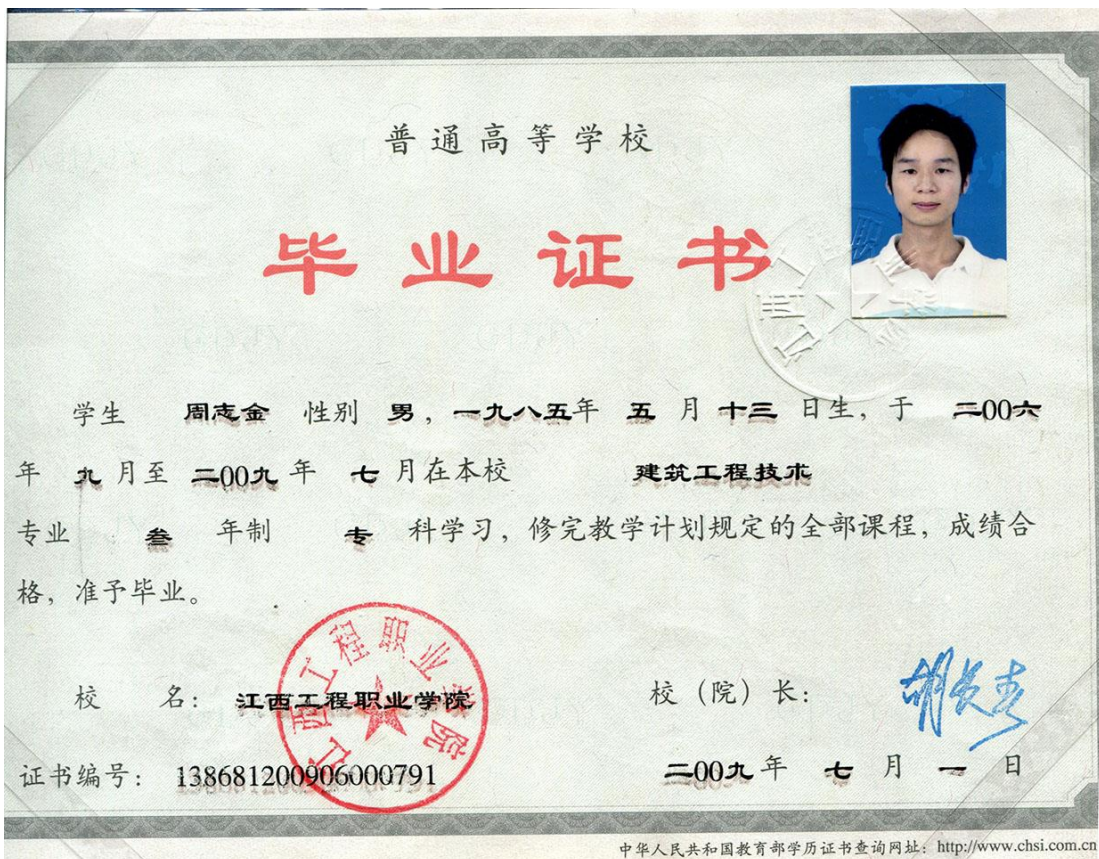 普通高等学校
毕业证书
学生 周志金 性别 男，一九八五年 五 月 十三 日生，于 二00六
年 九 月至 二00九 年 七 月在本校 建筑工程技术
专业 叁 年制 专 科学习，修完教学计划规定的全部课程，成绩合
格，准予毕业。
江西工程职业学院
校 名：江西工程职业学院
校（院）长：胡长春
证书编号：138681200906000791
二00九 年 七 月 一 日
中华人民共和国教育部学历证书查询网址：http://www.chsi.com.cn